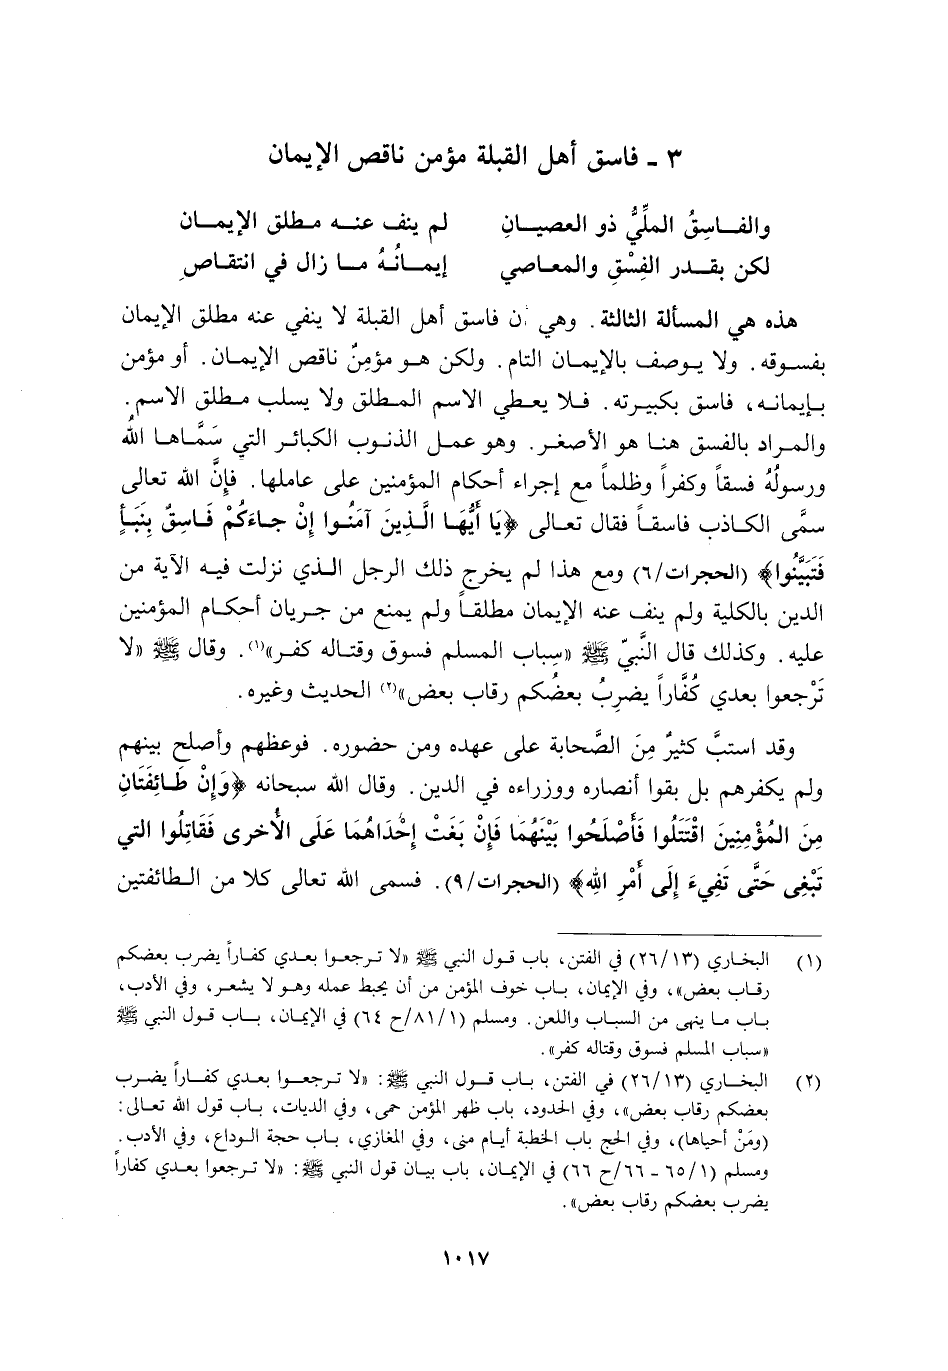 ٣ ـ فاسق أهل القبلة مؤمن ناقص الإيمان
والفـاسِقُ الملِّيُّ ذو العصيـانِ لم ينف عنـه مطلق الإيمـان
لكن بقـدر الفِسْقِ والمعاصي إيمـانُهُ مـا زال في انتقـاصِ
هذه هي المسألة الثالثة. وهي أن فاسق أهل القبلة لا ينفي عنه مطلق الإيمان
بفسوقه. ولا يوصف بالإيمان التام. ولكن هو مؤمنٌ ناقص الإيمان. أو مؤمن
بإيمانه، فاسق بكبيرته. فلا يعطي الاسم المطلق ولا يسلب مطلق الاسم.
والمراد بالفسق هنا هو الأصغر. وهو عمل الذنوب الكبائر التي سَمَّاها اللهُ
ورسولُهُ فسقاً وكفراً وظلماً مع إجراء أحكام المؤمنين على عاملها. فإنَّ الله تعالى
سمَّى الكاذب فاسقاً فقال تعالى ﴿يَا أَيُّهَا الَّذِينَ آمَنُوا إِنْ جاءَكُمْ فَاسِقٌ بِنَبَأٍ
فَتَبَيَّنُوا﴾ (الحجرات/٦) ومع هذا لم يخرج ذلك الرجل الذي نزلت فيه الآية من
الدين بالكلية ولم ينف عنه الإيمان مطلقاً ولم يمنع من جريان أحكام المؤمنين
عليه. وكذلك قال النَّبيّ ﷺ «سِباب المسلم فسوق وقتاله كفر»(١). وقال ﷺ «لا
تَرْجعوا بعدي كُفَّاراً يضربُ بعضُكم رقاب بعض»(٢) الحديث وغيره.
وقد استبَّ كثيرٌ مِنَ الصَّحابة على عهده ومن حضوره. فوعظهم وأصلح بينهم
ولم يكفرهم بل بقوا أنصاره ووزراءه في الدين. وقال الله سبحانه ﴿وَإِنْ طَائِفَتَانِ
مِنَ المُؤْمِنِينَ اقْتَتَلُوا فَأَصْلَحُوا بَيْنَهُمَا فَإِنْ بَغَتْ إِحْدَاهُمَا عَلَى الأُخرى فَقَاتِلُوا التي
تَبْغِى حَتَّى تَفِيءَ إِلَى أَمْرِ اللهِ﴾ (الحجرات/٩). فسمى الله تعالى كلا من الطائفتين
(١) البخاري (٢٦/١٣) في الفتن، باب قول النبي ﷺ «لا ترجعوا بعدي كفاراً يضرب بعضكم
رقاب بعض»، وفي الإيمان، باب خوف المؤمن من أن يحبط عمله وهو لا يشعر، وفي الأدب،
باب ما ينهى من السباب واللعن. ومسلم (٨١/١/ح ٦٤) في الإيمان، باب قول النبي ﷺ
«سباب المسلم فسوق وقتاله كفر».
(٢) البخاري (٢٦/١٣) في الفتن، باب قول النبي ﷺ: «لا ترجعوا بعدي كفاراً يضرب
بعضكم رقاب بعض»، وفي الحدود، باب ظهر المؤمن حمى، وفي الديات، باب قول الله تعالى:
(ومَنْ أحياها)، وفي الحج باب الخطبة أيام منى، وفي المغازي، باب حجة الوداع، وفي الأدب.
ومسلم (٦٥/١ ـ ٦٦/ح ٦٦) في الإيمان، باب بيان قول النبي ﷺ: «لا ترجعوا بعدي كفاراً
يضرب بعضكم رقاب بعض».
١٠١٧